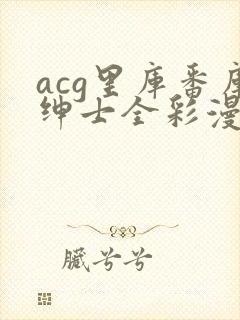 acg里库番库
绅士全彩漫
臓兮兮